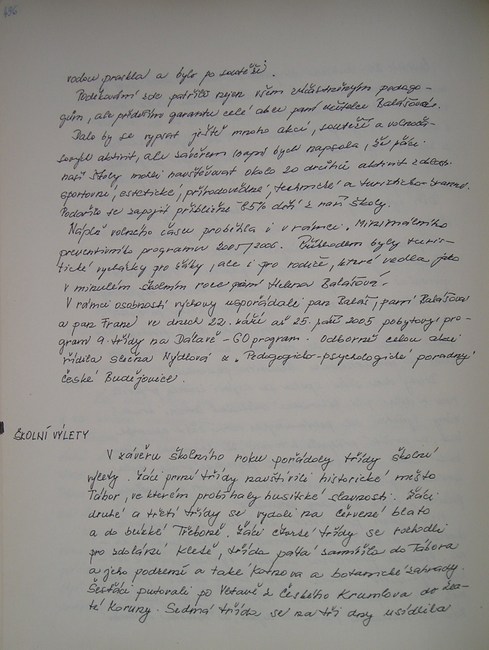 vodou praskla a bylo po soutěži.
Poděkování zde patřilo nejen všem zúčastněným pedago-
gům, ale především garantu celé akce paní učitelce Balášové.
Dalo by se vypsat ještě mnoho akcí, soutěží a volnoča-
sových aktivit, ale závěrem bych napsala, že žáci
naší školy mohli navštěvovat okolo 20 druhů aktivit z oblasti
sportovní, estetické, přírodovědné, technické a turisticko-branné.
Podařilo se zapojit přibližně 85% dětí z naší školy.
Náplň volného času probíhla i v rámci "Minimálního
preventivního programu 2005/2006. Příkladem byly turis-
tické vycházky pro žáky, ale i pro rodiče, které vedla jako
v minulém školním roce paní Helena Balášová.
V rámci osobnostní výchovy uspořádali pan Baláš, paní Balášová
a pan Franc ve dnech 22. září až 25. září 2005 pobytový pro-
gram 9. třídy na - GO program. Odborně celou akci
řídila slečna Nýdlová z "Pedagogicko-psychologické poradny"
České Budějovice.
ŠKOLNÍ VÝLETY
V závěru školního roku pořádaly třídy školní
výlety. Žáci první třídy navštívili historické město
Tábor, ve kterém probíhaly husitské slavnosti. Žáci
druhé a třetí třídy se vydali na Červené blato
a do blízké Třeboně. Žáci čtvrté třídy se rozhodli
pro zdolání Kletě, třída pátá zamířila do Tábora
a jeho podzemí a také a botanické zahrady.
Šesťáci putovali po Vltavě z Českého Krumlova do Zla-
té Koruny. Sedmá třída se na tři dny usídlila